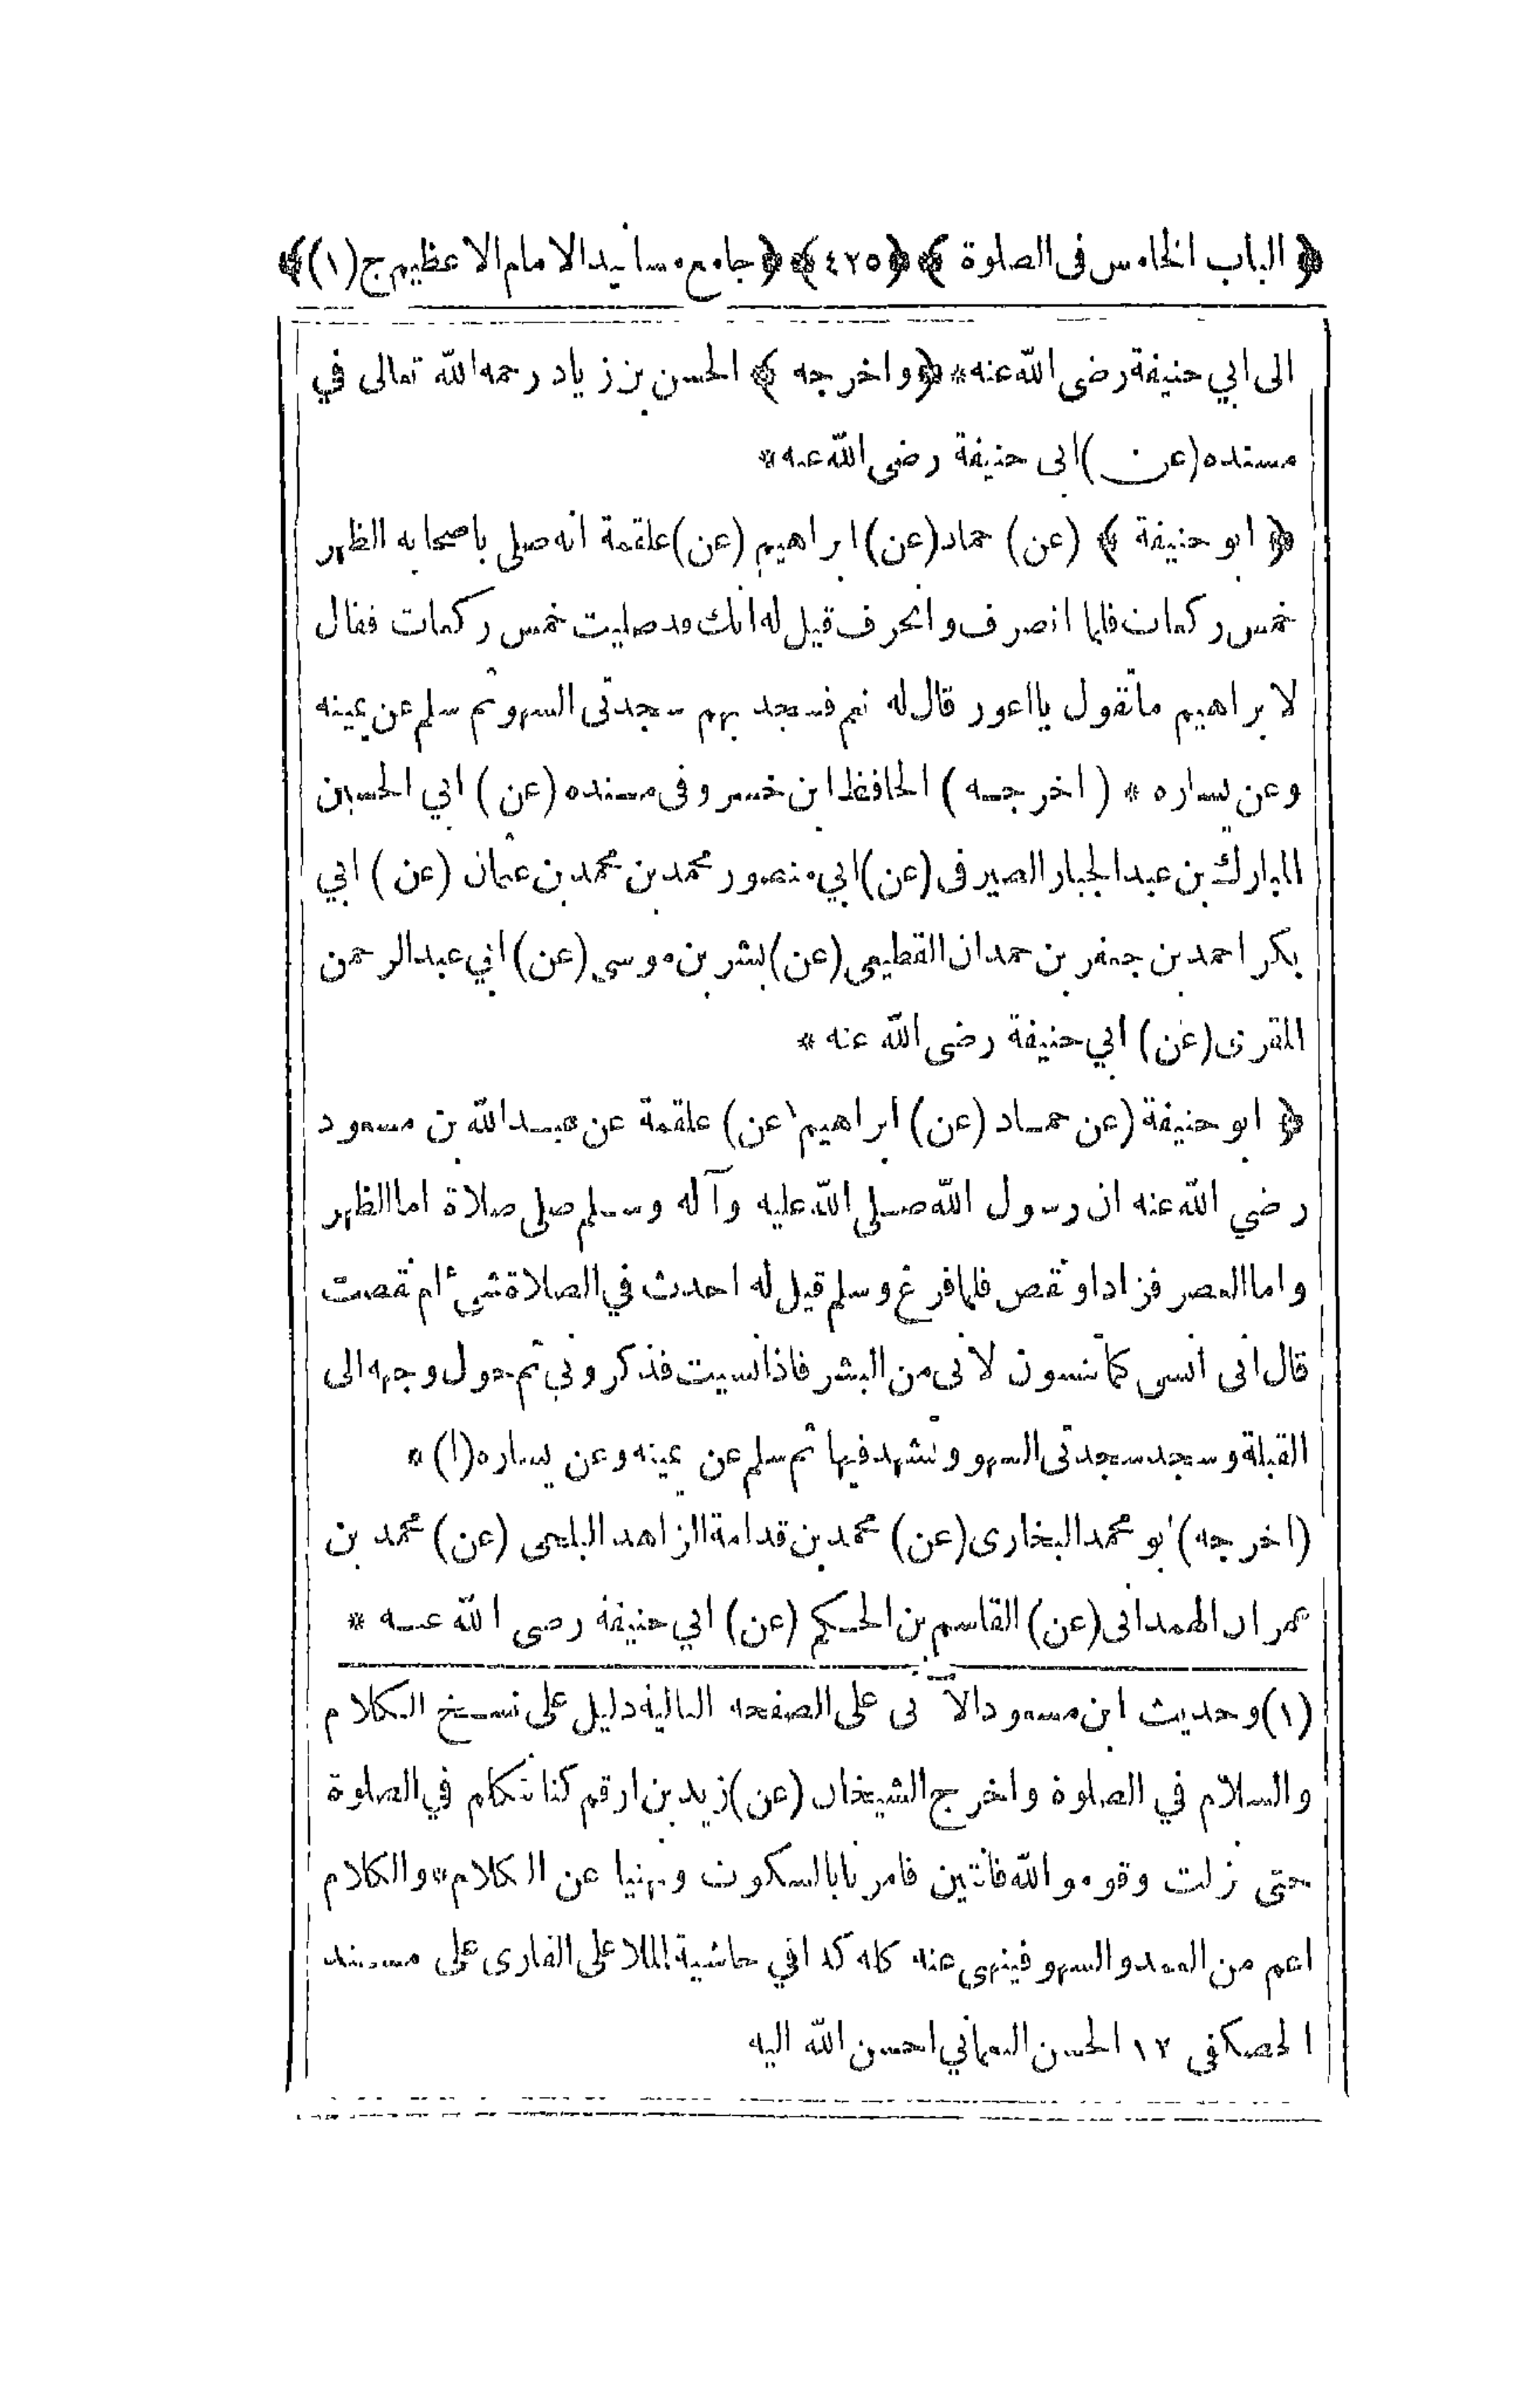 ﴿ الباب الخامس فى الصلوة ﴾ ﴿٤٢٥﴾ ﴿جامع مسانيد الامام الاعظم ج(١)﴾
الى ابي حنيفة رضى الله عنه * ﴿واخرجه﴾ الحسن بن زياد رحمه الله تعالى في
مسنده (عن) ابى حنيفة رضى الله عنه *
﴿ ابو حنيفة ﴾ (عن) حماد (عن) ابراهيم (عن) علقمة انه صلى باصحابه الظهر
خمس ركعات فلما انصرف وانحرف قيل له انك قد صليت خمس ركعات فقال
لابراهيم ماتقول يا اعور قال له نعم فسجد بهم سجدتى السهو ثم سلم عن يمينه
وعن يساره * (اخرجه) الحافظ ابن خسرو فى مسنده (عن) ابي الحسين
المبارك بن عبد الجبار الصيرفى (عن) ابي منصور محمد بن محمد بن عثمان (عن) ابي
بكر احمد بن جعفر بن حمدان القطيعى (عن) بشر بن موسى (عن) ابي عبد الرحمن
المقرى (عن) ابي حنيفة رضى الله عنه *
﴿ ابو حنيفة (عن حماد (عن) ابراهيم (عن) علقمة عن عبد الله بن مسعود
رضي الله عنه ان رسول الله صلى الله عليه وآله وسلم صلى صلاة اما الظهر
واما العصر فزاد او نقص فلما فرغ وسلم قيل له احدث في الصلاة شىء ام نقصت
قال انى انسى كما تنسون لانى من البشر فاذا نسيت فذكروني ثم حول وجهه الى
القبلة وسجد سجدتى السهو وتشهد فيها ثم سلم عن يمينه وعن يساره (١) *
(اخرجه) ابو محمد البخارى (عن) محمد بن قدامة الزاهد البلخى (عن) محمد بن
عمران الهمدانى (عن) القاسم بن الحكم (عن) ابي حنيفة رضى الله عنه *
(١) وحديث ابن مسعود الآتى على الصفحه التاليه دليل على نسخ الكلام
والسلام في الصلوة واخرج الشيخان (عن) زيد بن ارقم كنا نتكلم في الصلوة
حتى نزلت وقوموا لله قانتين فامرنا بالسكوت ونهينا عن الكلام * والكلام
اعم من العمد والسهو فينهى عنه كله كذا في حاشية الملا على القارى على مسند
الحصكفى ١٢ الحسن النعماني احسن الله اليه